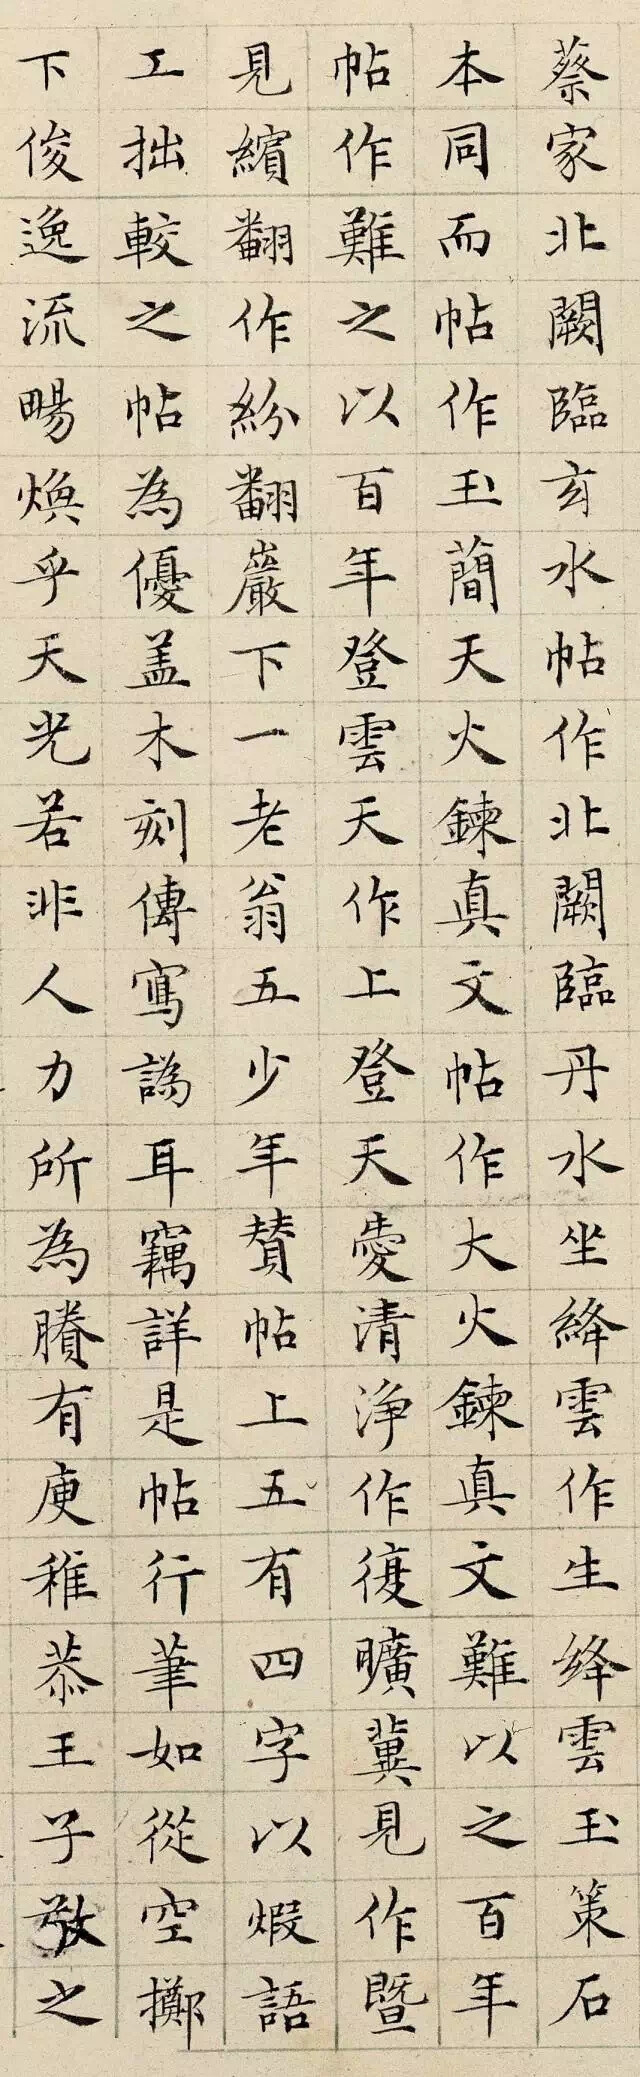 蔡家北闕臨玄水帖作北闕臨丹水坐絳雲作生絳雲玉策石
本同而帖作玉蕳天火鍊真文帖作大火鍊真文難以之百年
帖作難之以百年登雲天作上登天愛清淨作復曠冀見作暨
見繽翻作紛翻巖下一老翁五少年賛帖上五有四字以煆語
工拙較之帖為優盖木刻傳寫譌耳竊詳是帖行筆如從空擲
下俊逸流暢煥乎天光若非人力所為賸有庾稚恭王子敬之